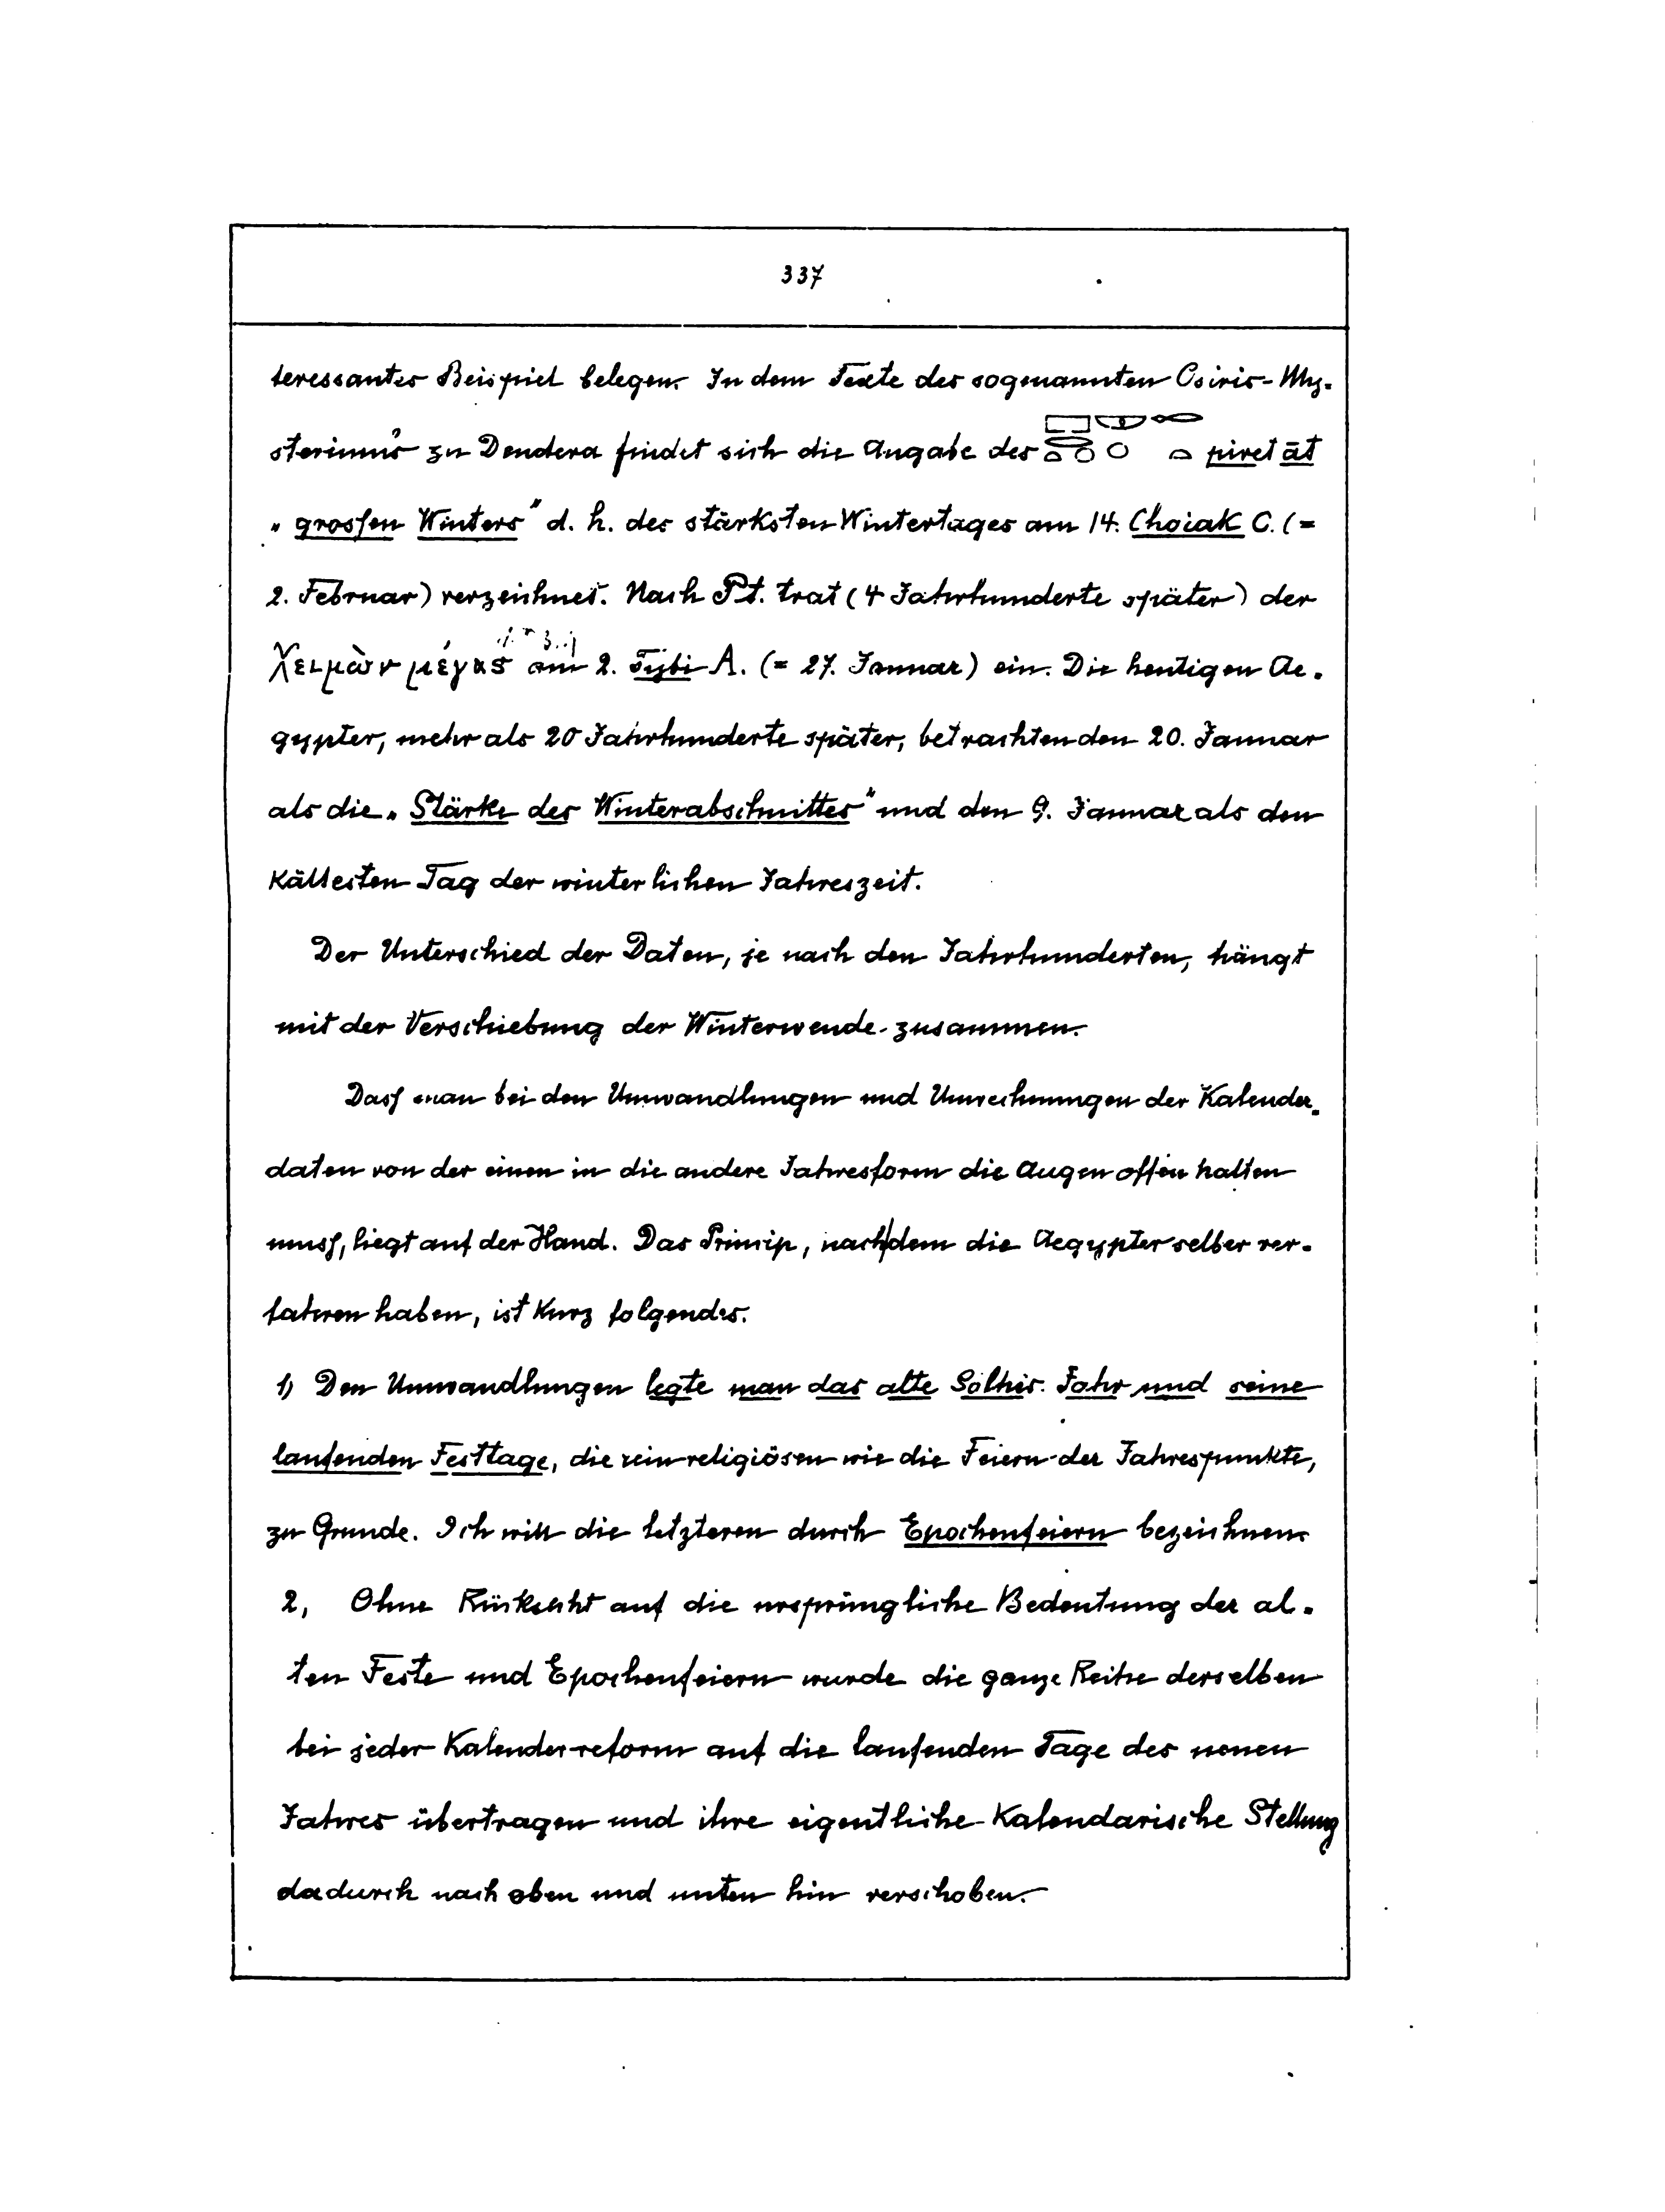 337
teressantes Beispiel belegen. In dem Texte des sogenannten Osiris-My-
steriums zu Dendera findet sich die Angabe des piret āt
„grossen Winters" d. h. des stärksten Wintertages am 14. Choiak C. (=
2. Februar) verzeichnet. Nach Pt. trat (4 Jahrhunderte später) der
Χειμὼν μέγας am 2. Tybi A. (= 27. Januar) ein. Die heutigen Ae-
gypter, mehr als 20 Jahrhunderte später, betrachten den 20. Januar
als die „Stärke des Winterabschnittes" und den 9. Januar als den
kältesten Tag der winterlichen Jahreszeit.
Der Unterschied der Daten, je nach den Jahrhunderten, hängt
mit der Verschiebung der Winterwende zusammen.
Dass man bei den Umwandlungen und Umrechnungen der Kalender-
daten von der einen in die andere Jahresform die Augen offen halten
muss, liegt auf der Hand. Das Princip, nach dem die Aegypter selber ver-
fahren haben, ist kurz folgendes.
1) Den Umwandlungen legte man das alte Sothis-Jahr und seine
laufenden Festtage, die rein religiösen wie die Feiern der Jahrespunkte,
zu Grunde. Ich will die letzteren durch Epochenfeiern bezeichnen.
2, Ohne Rücksicht auf die ursprüngliche Bedeutung der al-
ten Feste und Epochenfeiern wurde die ganze Reihe derselben
bei jeder Kalenderreform auf die laufenden Tage des neuen
Jahres übertragen und ihre eigentliche kalendarische Stellung
dadurch nach oben und unten hin verschoben.